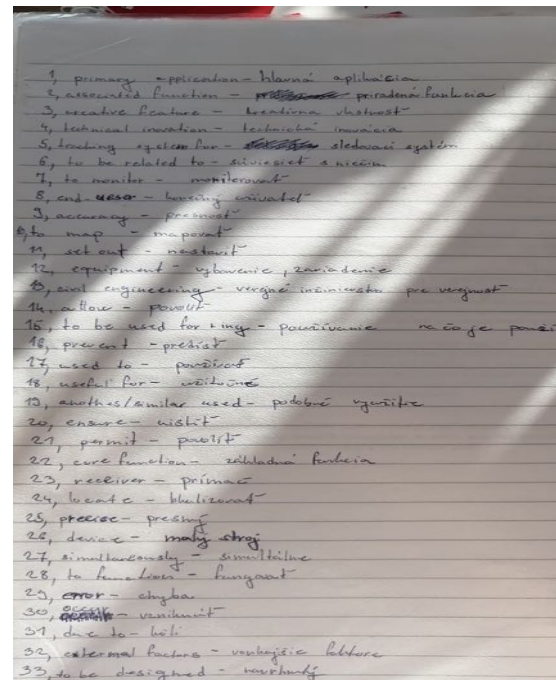 1, primary application - hlavná aplikácia
2, associated function - priradená funkcia
3, creative feature - kreatívna vlastnosť
4, technical inovation - technická inovácia
5, tracking system for - sledovací systém
6, to be related to - súvisieť s niečím
7, to monitor - monitorovať
8, end-user - konečný užívateľ
9, accuracy - presnosť
to map - mapovať
11, set out - nastaviť
12, equipment - vybavenie, zariadenie
13, civil engineering - verejné inžinierstvo pre verejnosť
14, allow - povoliť
15, to be used for + ing - používanie na čo je použi
16, prevent - predísť
17, used to - používať
18, useful for - užitočné
19, another/similar used - podobné využitie
20, ensure - uistiť
21, permit - povoliť
22, core function - základná funkcia
23, receiver - prímač
24, locate - lokalizovať
25, precise - presný
26, device - malý stroj
27, simultaneously - simultálne
28, to function - fungovať
29, error - chyba
30, occur - vzniknúť
31, due to - kôli
32, external factors - vonkajšie faktore
33, to be designed - navrhnutý